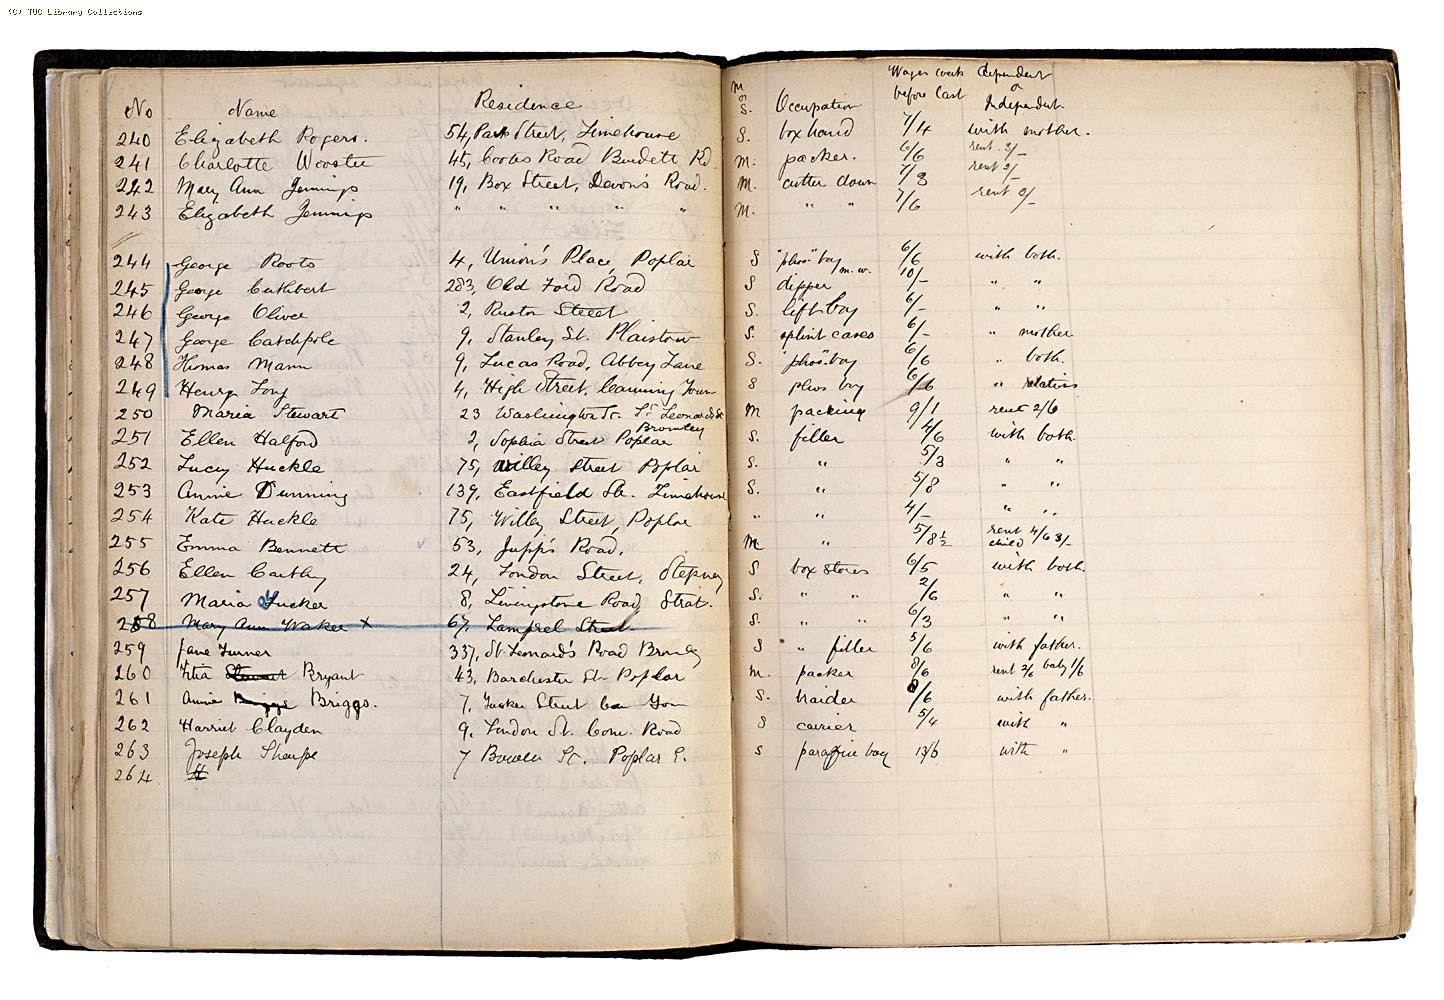 (C) TUC Library Collections
No Name Residence M or S. Occupation Wages week before last dependent or Independent.
240 Elizabeth Rogers. 54, Park Street, Limehouse S. box hand 7/4 with mother.
241 Charlotte Wooster 45, Coutts Road Burdett Rd. M. packer. 6/6 rent 3/-
242 Mary Ann Jennings 19, Box Street, Devon's Road. M. cutter down 7/3 rent 3/-
243 Elizabeth Jennings " " " " " M. " " 7/6 rent 2/-
244 George Roots 4, Union's Place, Poplar S "phos" boy 6/6 with both.
245 George Cuthbert 283, Old Ford Road S dipper m.w. 10/- " "
246 George Oliver 2, Ruston Street S. lift boy 6/- " "
247 George Catchpole 9, Stanley St. Plaistow S. splint cases 6/- " mother
248 Thomas Mann 9, Lucas Road, Abbey Lane S. "phos" boy 6/6 " both.
249 Henry Long 4, High Street, Canning Town S phos boy 6/6 " relatives
250 Maria Stewart 23 Washington St. St. Leonards St Bromley M packing 9/1 rent 2/6
251 Ellen Halford 2, Sophia Street Poplar S. filler 4/6 with both.
252 Lucy Huckle 75, Willey Street Poplar S. " 5/3 " "
253 Annie Dunning 139, Eastfield St. Limehouse S. " 5/8 " "
254 Kate Huckle 75, Willey Street, Poplar " " 4/- " "
255 Emma Bennett 53, Jupp's Road, M " 5/8½ rent 4/6 child 3/-
256 Ellen Carthy 24, London Street, Stepney S box stores 6/5 with both.
257 Maria Tucker 8, Livingstone Road, Strat. S. " " 2/6 " "
258 Mary Ann Waker x 67, Lamprel Street S. " " 6/3 " "
259 Jane Turner 337, St. Leonard's Road Bromley S " filler 5/6 with father.
260 Bryant 43, Barchester St. Poplar M. packer 8/6 rent 2/6 baby 1/6
261 Annie Briggs Briggs. 7, Tucker Street Can Town S. 8/6 with father.
262 Harriet Clayden 9, London St. Com. Road S carrier 5/4 with "
263 Joseph Sharpe 7 Bowen St. Poplar E. S paraffin boy 13/6 with "
264 H